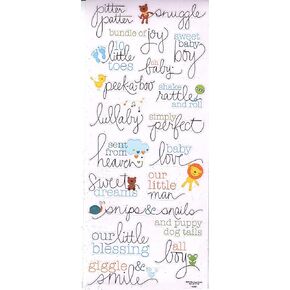 pitter patter
snuggle
bundle of joy
sweet baby boy
10 little toes
oh baby
peek-a-boo
shake rattle
and roll
lullaby
simply perfect
sent from heaven
baby love
sweet dreams
our little man
snips & snails
and puppy dog tails
our little blessing
all boy
giggle & smile